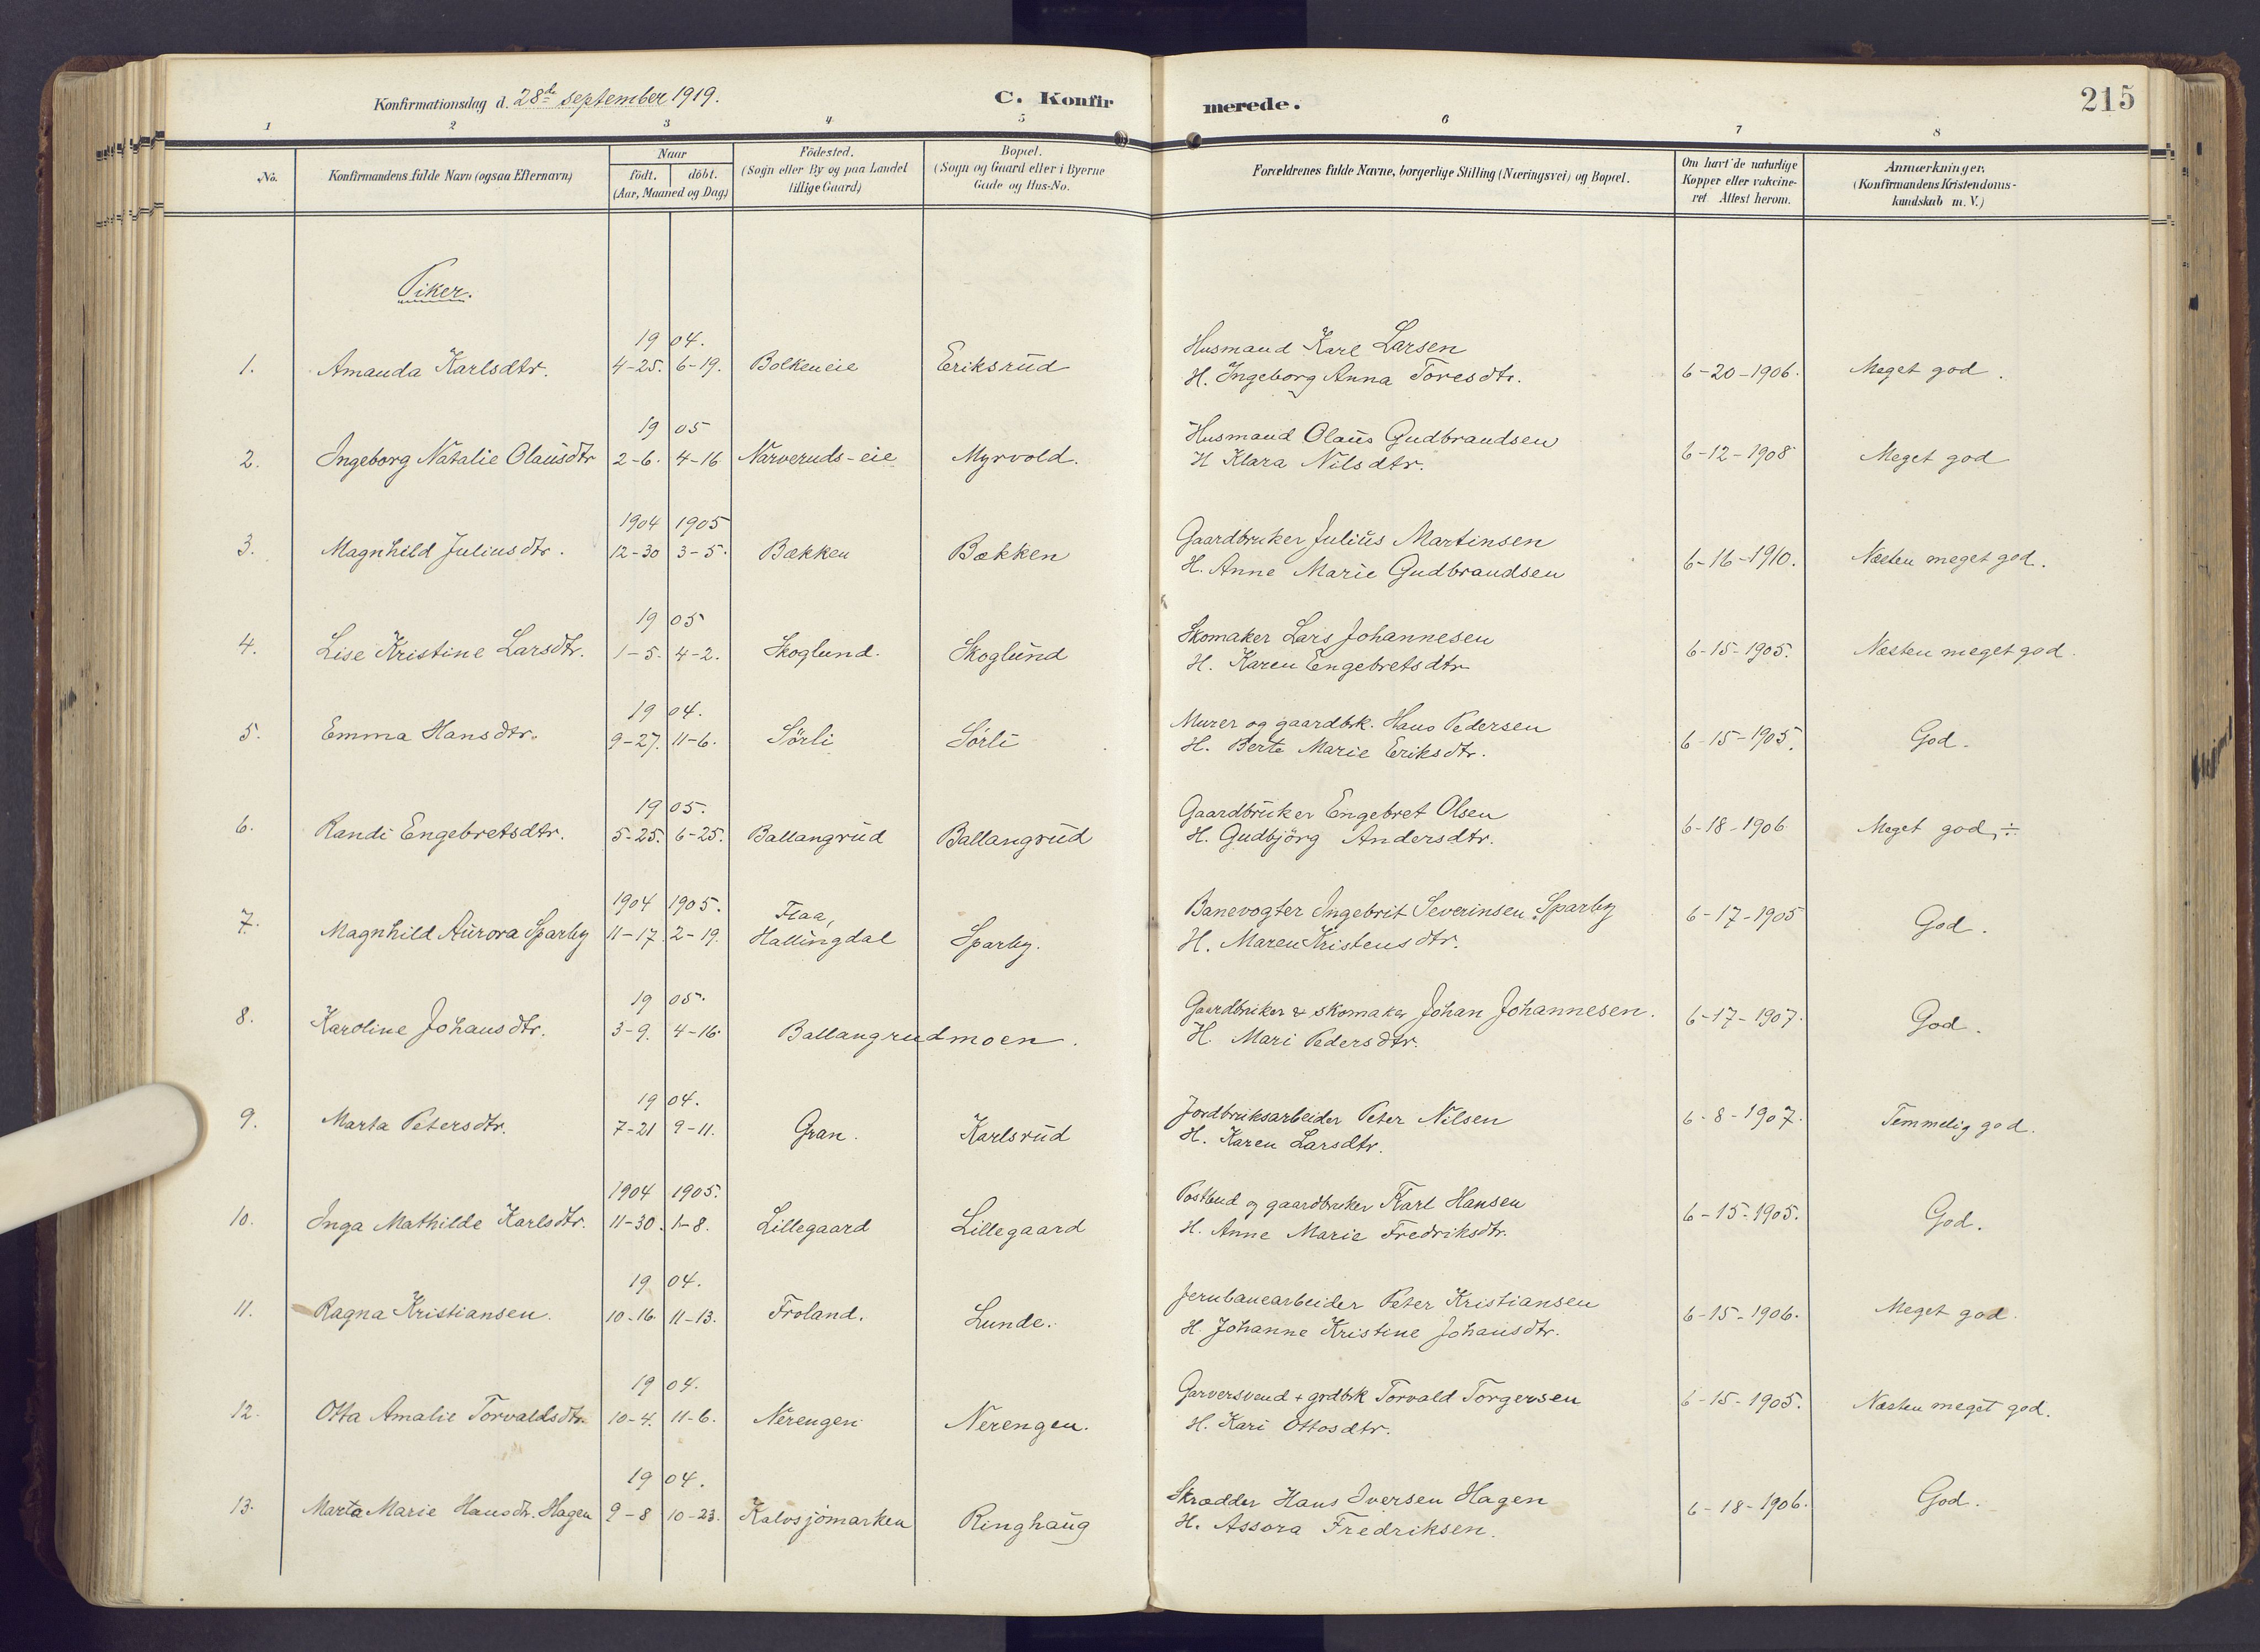 Konfirmationsdag d. 28de september 1919.
C. Konfirmerede.
215
1 2 3 4 5 6 7 8
No.
Konfirmandens fulde Navn (ogsaa Efternavn)
Naar
födt. döbt.
(Aar, Maaned og Dag)
Födested.
(Sogn eller By og paa Landet
tillige Gaard)
Bopæl.
(Sogn og Gaard eller i Byerne
Gade og Hus-No.
Forældrenes fulde Navne, borgerlige Stilling (Næringsvei) og Bopæl.
Om havt de naturlige
Kopper eller vakcine-
ret. Attest herom.
Anmærkninger.
(Konfirmandens Kristendoms-
kundskab m. V.)
Piker.
19 04.
1. Amanda Karlsdtr. 4-25. 6-19. Bolkeneie Eriksrud
Husmand Karl Larsen
H. Ingeborg Anna Toresdtr.
6-20-1906. Meget god.
19 05
2. Ingeborg Natalie Olausdtr 2-6. 4-16 Narveruds-eie Myrvold.
Husmand Olaus Gudbrandsen
H Klara Nilsdtr.
6-12-1908 Meget god
1904 1905
3. Magnhild Juliusdtr. 12-30 3-5. Bækken Bækken
Gaardbruker Julius Martinsen
H. Anne Marie Gudbrandsen
6-16-1910. Næsten meget god.
19 05
4. Lise Kristine Larsdtr. 1-5. 4-2. Skoglund. Skoglund
Skomaker Lars Johannesen
H. Karen Engebretsdtr
6-15-1905. Næsten meget god.
19 04.
5. Emma Hansdtr. 9-27. 11-6. Sörli Sörli
Murer og gaardbk. Hans Pedersen
H. Berte Marie Eriksdtr.
6-15-1905. God.
19 05.
6. Randi Engebretsdtr. 5-25. 6-25. Ballangrud Ballangrud
Gaardbruker Engebret Olsen
H. Gudbjörg Andersdtr.
6-18-1906 Meget god, ÷
1904 1905.
7. Magnhild Aurora Sparby 11-17. 2-19. Flaa,
Hallingdal Sparby.
Banevogter Ingebrit Severinsen Sparby
H. Maren Kristensdtr.
6-17-1905 God.
19 05.
8. Karoline Johansdtr. 3-9. 4-16. Ballangrudmoen.
Gaardbruker & skomaker Johan Johannesen.
H. Mari Pedersdtr.
6-17-1907. God.
19 04.
9. Marta Petersdtr. 7-21 9-11. Gran. Karlsrud
Jordbruksarbeider Peter Nilsen
H. Karen Larsdtr.
6-8-1907. Temmelig god.
1904 1905.
10. Inga Mathilde Karlsdtr. 11-30. 1-8. Lillegaard Lillegaard
Postbud og gaardbruker Karl Hansen
H. Anne Marie Fredriksdtr.
6-15-1905. God.
19 04.
11. Ragna Kristiansen. 10-16. 11-13. Froland. Lunde.
Jernbanearbeider Peter Kristiansen
H. Johanne Kristine Johansdtr.
6-15-1906. Meget god.
19 04.
12. Otta Amalie Torvaldsdtr. 10-4. 11-6. Nerengen Nerengen.
Garversvend + grdbk Torvald Torgersen
H. Kari Ottosdtr.
6-15-1905. Næsten meget god.
19 04.
13. Marta Marie Hansdtr. Hagen 9-8 10-23. Kalvsjömarken Ringhaug
Skrædder Hans Iversen Hagen
H. Assora Fredriksen.
6-18-1906. God.